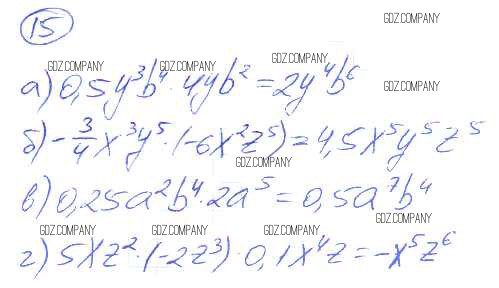 15
GDZ.COMPANY
GDZ.COMPANY GDZ.COMPANY GDZ.COMPANY
а) 0,5y³b⁴ · 4yb² = 2y⁴b⁶
GDZ.COMPANY
б) -3/4x³y⁵ · (-6x²z⁵) = 4,5x⁵y⁵z⁵
GDZ.COMPANY
в) 0,25a²b⁴ · 2a⁵ = 0,5a⁷b⁴
GDZ.COMPANY GDZ.COMPANY GDZ.COMPANY GDZ.COMPANY
г) 5xz² · (-2z³) · 0,1x⁴z = -x⁵z⁶